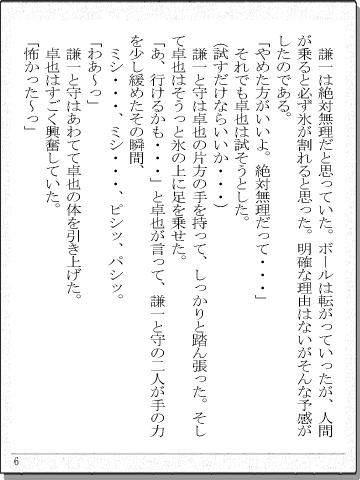 謙一は絶対無理だと思っていた。ボールは転がっていったが、人間
が乗ると必ず氷が割れると思った。明確な理由はないがそんな予感が
したのである。
「やめた方がいいよ。絶対無理だって・・・」
　それでも卓也は試そうとした。
（試すだけならいいか・・・）
　謙一と守は卓也の片方の手を持って、しっかりと踏ん張った。そし
て卓也はそうっと氷の上に足を乗せた。
「あ、行けるかも・・・」と卓也が言って、謙一と守の二人が手の力
を少し緩めたその瞬間、
　ミシ・・・、ミシ・・・、ピシッ、パシッ。
「わあ～っ」
　謙一と守はあわてて卓也の体を引き上げた。
　卓也はすごく興奮していた。
「怖かった～っ」
6